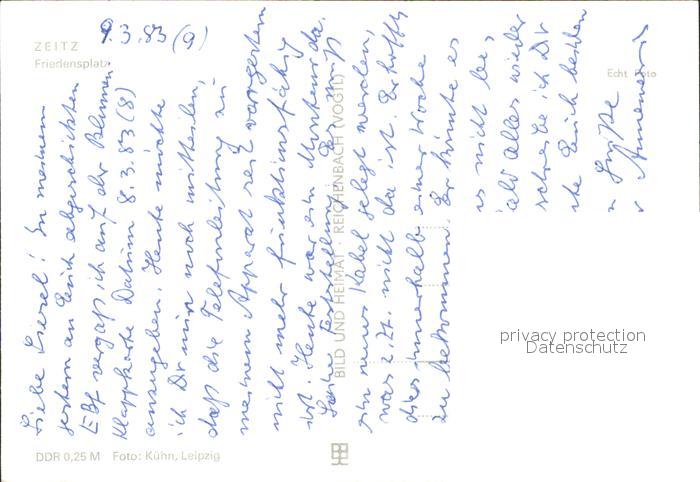 ZEITZ
Friedensplatz
9.3.83 (9)
Liebe Liesel! In meinem
gestern an Euch abgeschickten
EBf vergaß ich auf der Blumen
Klappkarte Datum 8.3.83 (8)
anzugeben. Heute möchte
ich Dir nur noch mitteilen,
daß die Telefonleitung zu
meinem Apparat seit vorgestern
nicht mehr funktionsfähig
ist. Heute war ein Monteur da.
Seine Feststellung: Es muß
ein neues Kabel gelegt werden,
was z.Zt. nicht da ist. Er hofft
dies innerhalb einer Woche
zu bekommen. Er könnte es
es nicht
alles wieder
schreibe ich Dir
Euch beiden
Grüße
Annemarie
BILD UND HEIMAT · REICHENBACH (VOGTL)
Echt Foto
privacy protection
Datenschutz
DDR 0,25 M Foto: Kühn, Leipzig